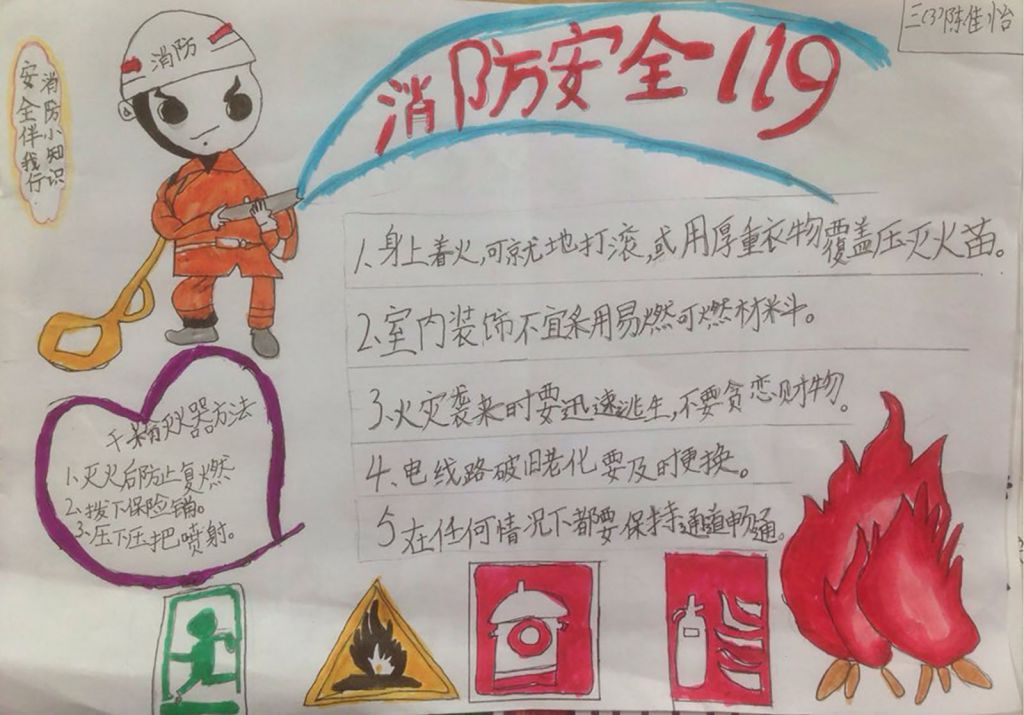 三(3)陈佳怡
消防安全119
消防
消防小知识
安全伴我行
1、身上着火,可就地打滚,或用厚重衣物覆盖压灭火苗。
2、室内装饰不宜采用易燃可燃材料。
3、火灾袭来时要迅速逃生,不要贪恋财物。
4、电线路破旧老化要及时更换。
5在任何情况下都要保持通道畅通。
干粉灭火器方法
1、灭火后防止复燃
2、拔下保险销。
3、压下压把喷射。